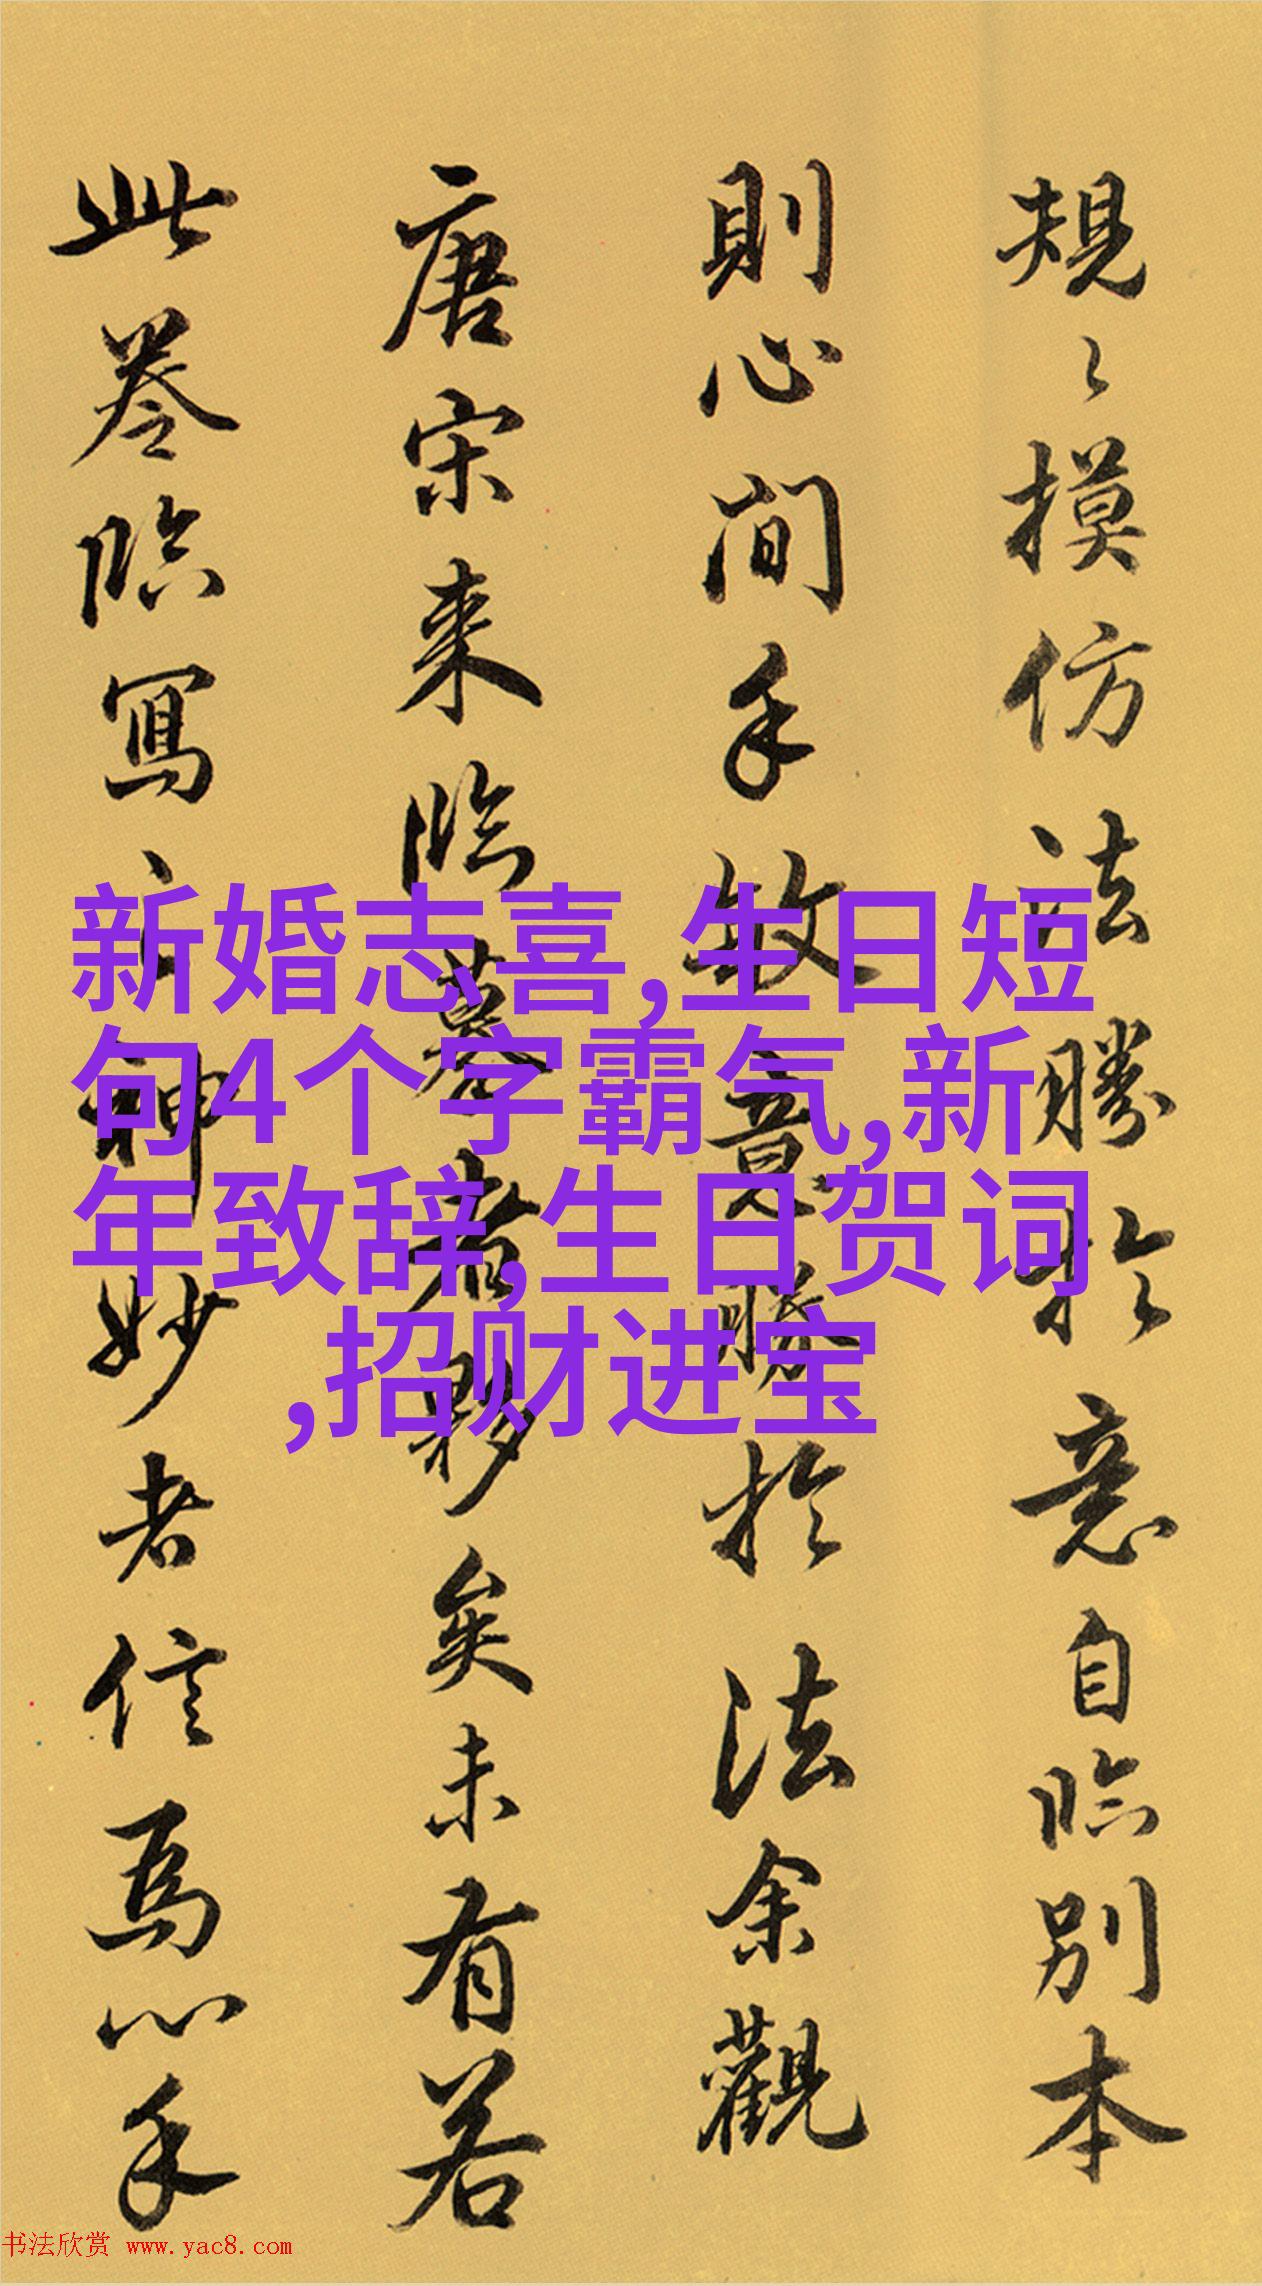 規〻摸仿法勝於意自臨別本
則心間手敏意勝於法余觀
唐宋来臨摹者夥矣未有若
此卷臨寫神妙者信焉心手
新婚志喜,生日短
句4个字霸气,新
年致辞,生日贺词
,招财进宝
书法欣赏 www.yac8.com